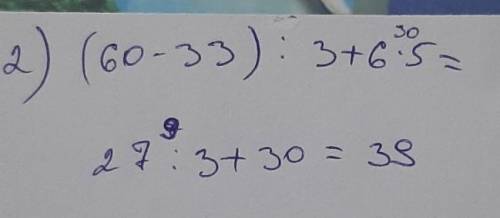 30
2) (60-33) : 3+6·5=
9
27 : 3+30 = 39